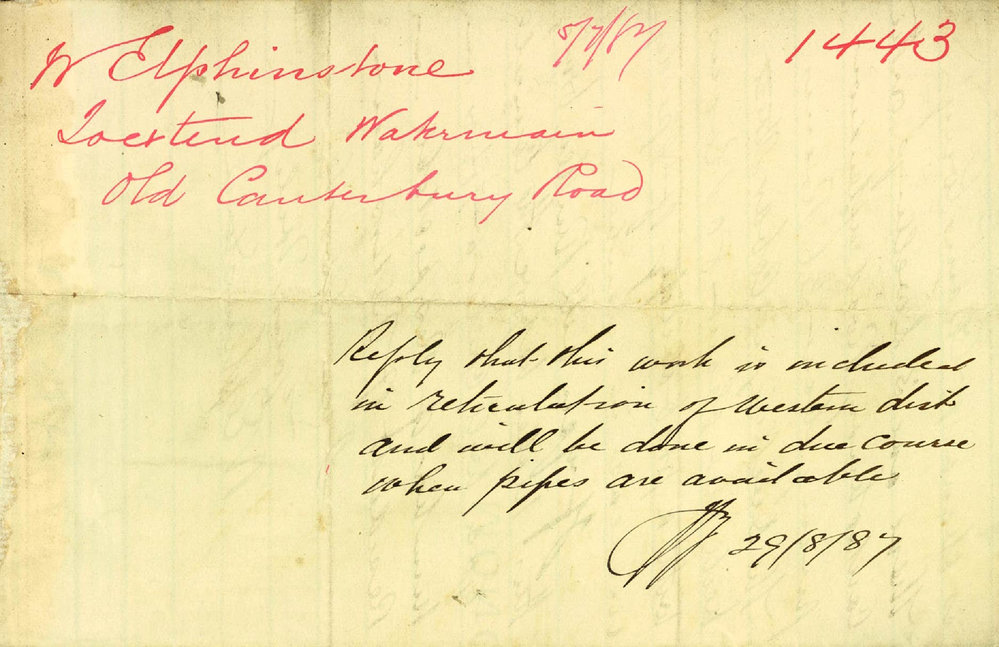 W Elphinstone 5/7/87 1443
To extend Watermain
Old Canterbury Road
Reply that this work is included
in reticulation of Western dist
and will be done in due course
when pipes are available
29/8/87